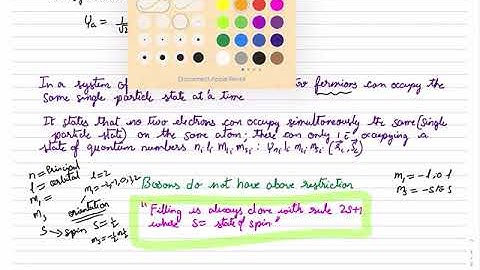 Ψa = 1/√2
Disconnect Apple Pencil
In a system of two fermions can occupy the
same single particle state at a time
It states that no two electrons can occupy simultaneously the same (single
particle state) on the same atom; there can only 1 e⁻ occupying a
state of quantum numbers n, l, ml, ms
n = Principal
l = orbital l=2
ml = -2,-1,0,1,2
orientation
S → spin S = ½
ms = -½ , ½
Bosons do not have above restriction
ml = -1, 0, 1
ms = -S to S
"Filling is always done with rule 2S+1
where S = state of spin"